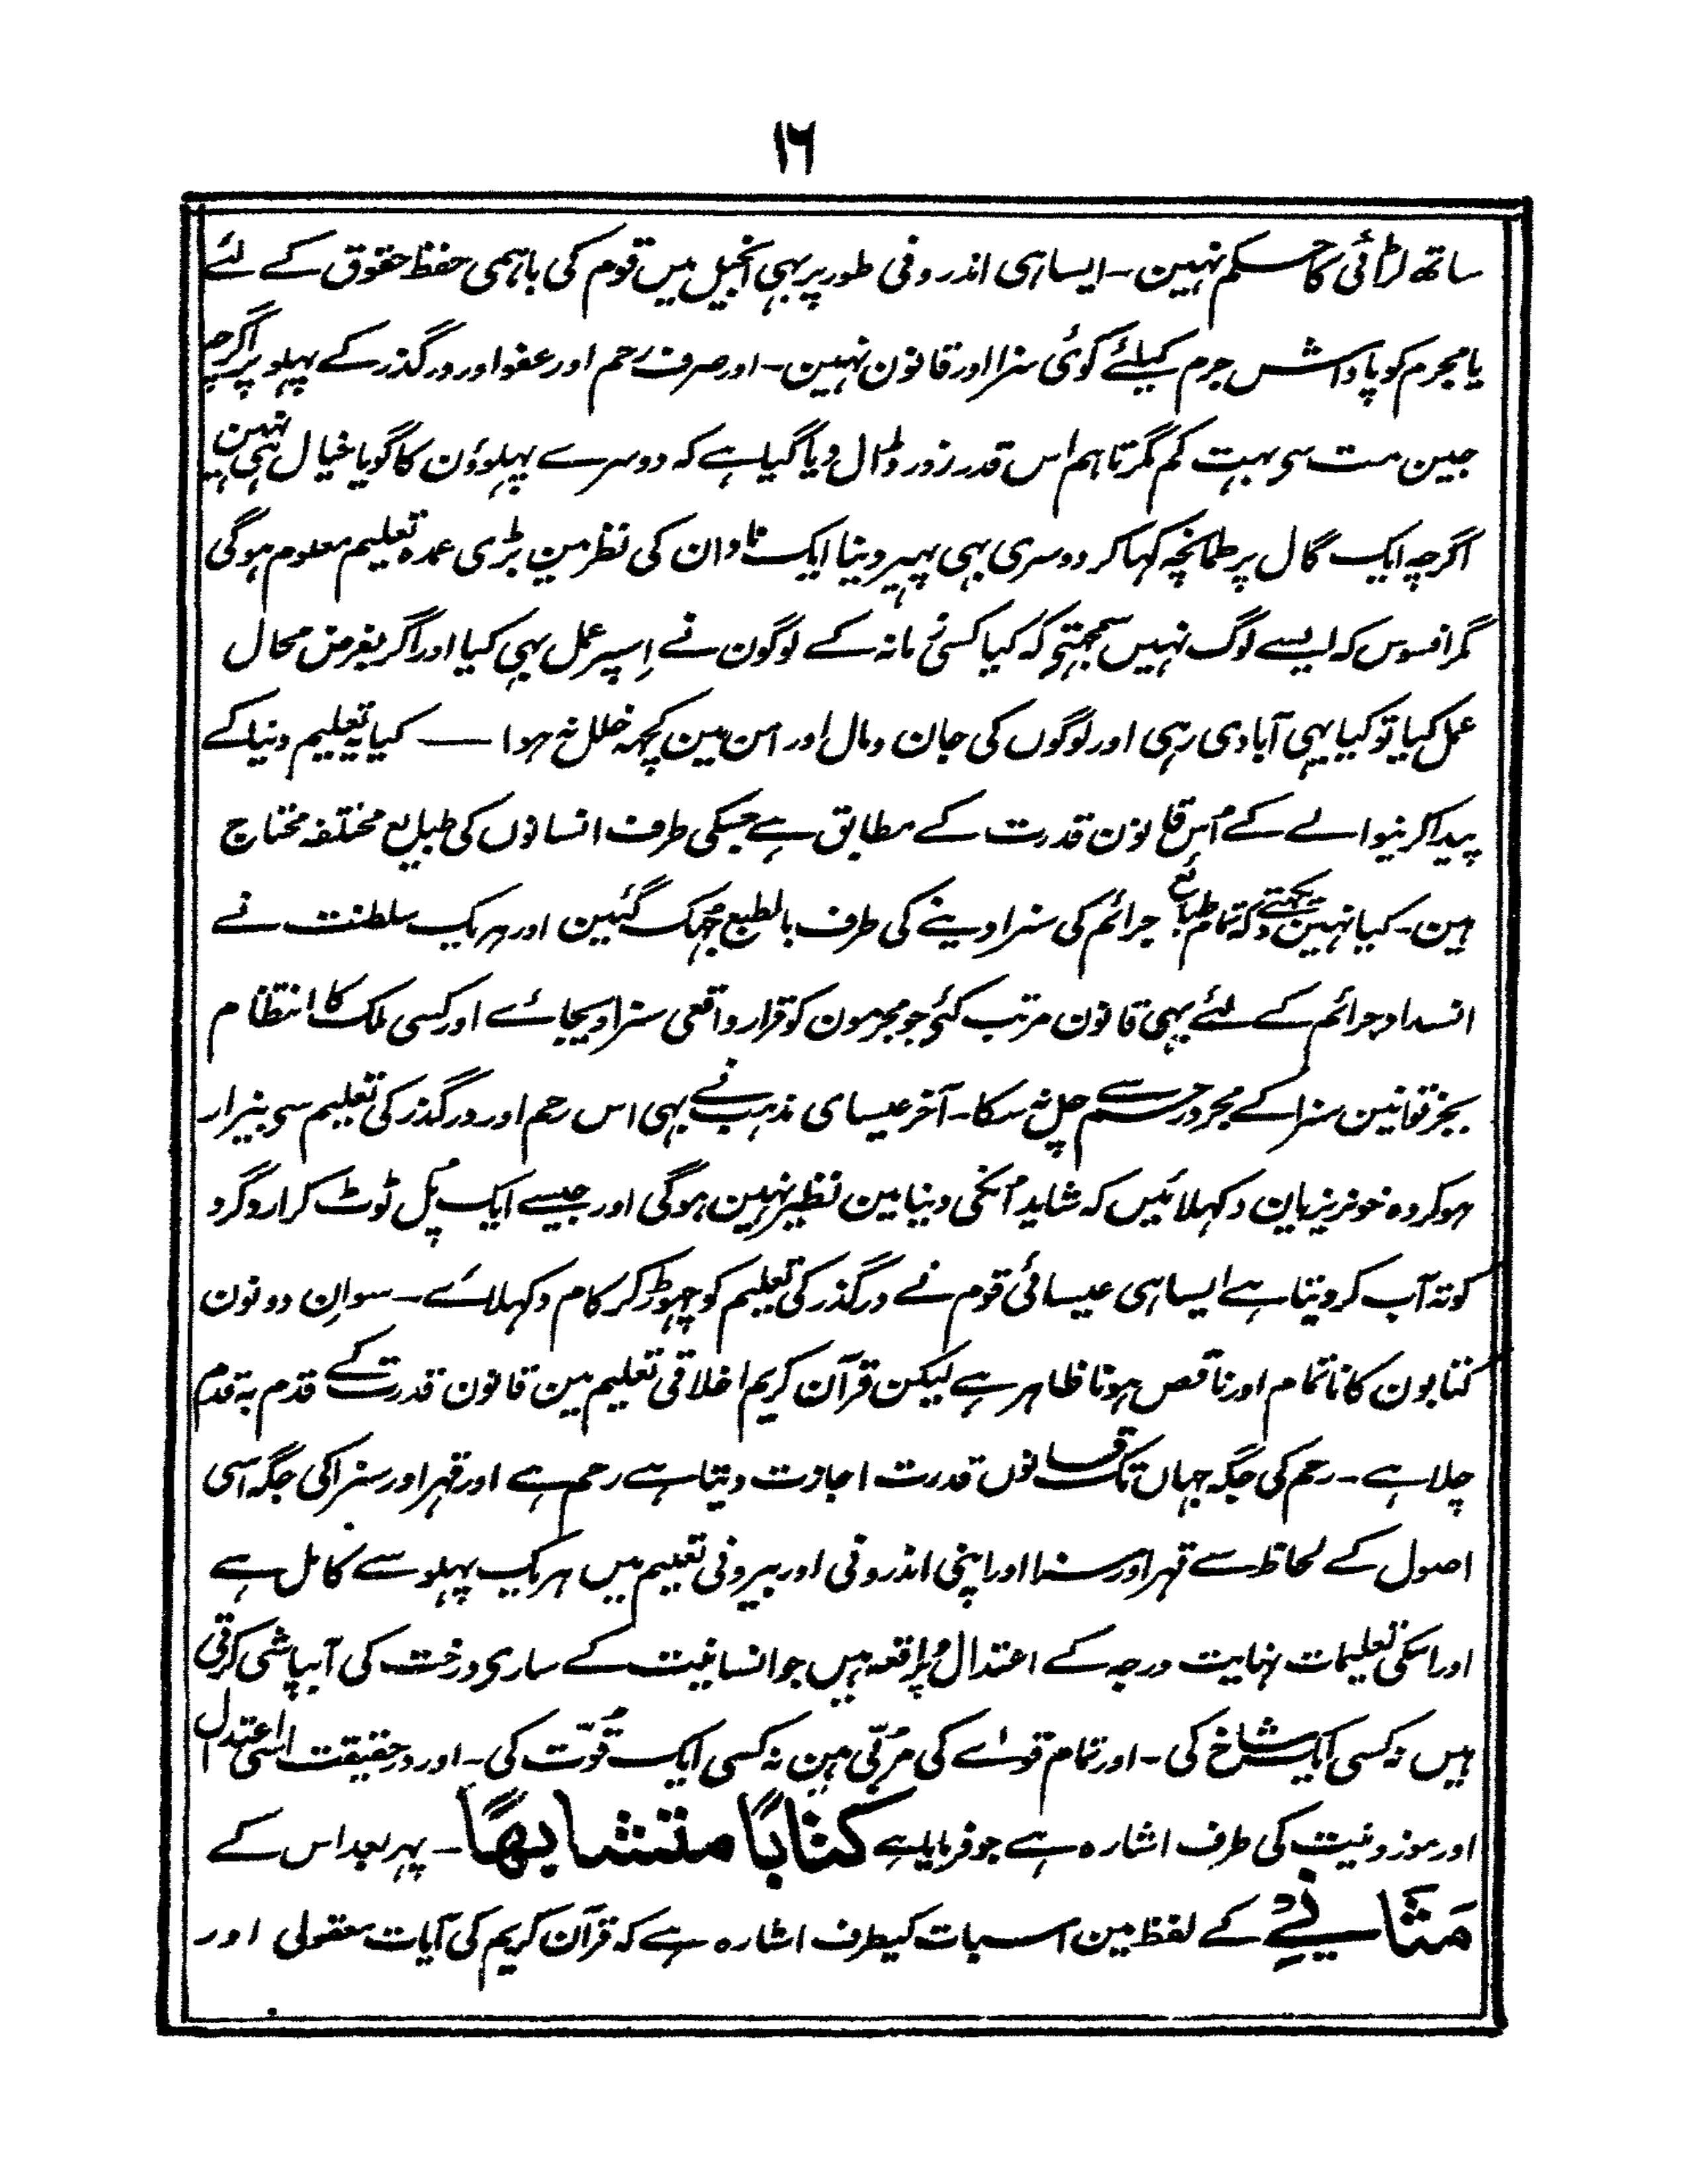 ١٦
ساتھ لڑائی کا حکم نہین۔ ایسا ہی اندرونی طور پر بہی انجیل میں قوم کی باہمی حفظ حقوق کے لئے
یا مجرم کو پاداش جرم کیلئے کوئی سزا اور قانون نہین۔ اور صرف رحم اور عفو اور درگذر کے پہلو پر اگرچہ
جین مت سی بہت کم مگر تاہم اس قدر زور ڈال دیا گیا ہے کہ دوسرے پہلوؤن کا گویا خیال ہی نہین
اگرچہ ایک گال پر طمانچہ کہا کر دوسری بہی پہیر دینا ایک نادان کی نظر مین بڑی عمدہ تعلیم معلوم ہوگی
مگر افسوس کہ ایسے لوگ نہیں سمجہتی کہ کیا کسی زمانہ کے لوگون نے اِسپر عمل بہی کیا اور اگر بفرض محال
عمل کیا تو کیا یہی آبادی رہی اور لوگوں کی جان و مال اور امن مین کچہہ خلل نہ ہوا — کیا یہ تعلیم دنیا کے
پیدا کرنیوالے کے اُس قانون قدرت کے مطابق ہے جسکی طرف انسانوں کی طبایع مختلفہ محتاج
ہین۔ کیا نہین دیکہتے کہ تمام طبائع جرائم کی سزا دینے کی طرف بالطبع جُہک گئین اور ہریک سلطنت نے
انسداد جرائم کے لئے یہی قانون مرتب کئی جو مجرمون کو قرار واقعی سزا دیجائے اور کسی ملک کا انتظام
بجز قوانین سزا کے مجرد رحم سے چل نہ سکا۔ آخر عیسای مذہب نے بہی اس رحم اور درگذر کی تعلیم سی بیزار
ہو کر وہ خونریزیان دکہلائیں کہ شاید اُنکی دنیا مین نظیر نہین ہوگی اور جیسے ایک پُل ٹوٹ کر اردگرد
کو تہ آب کر دیتا ہے ایسا ہی عیسائی قوم نے درگذر کی تعلیم کو چہوڑ کر کام دکہلائے۔ سو اِن دونون
کتابون کا ناتمام اور ناقص ہونا ظاہر ہے لیکن قرآن کریم اخلاقی تعلیم مین قانون قدرت کے قدم بہ قدم
چلا ہے۔ رحم کی جگہ جہاں تک قانوں قدرت اجازت دیتا ہے رحم ہے اور قہر اور سزا کی جگہ اسی
اصول کے لحاظ سے قہر اور سزا اور اپنی اندرونی اور بیرونی تعلیم میں ہریک پہلو سے کامل ہے
اور اسکی تعلیمات نہایت درجہ کے اعتدال پر واقعہ ہیں جو انسانیت کے ساری درخت کی آبپاشی کرتی
ہیں نہ کسی ایک شاخ کی۔ اور تمام قواے کی مُربّی ہین نہ کسی ایک قوّت کی۔ اور درحقیقت اسی اعتدال
اور موزونیت کی طرف اشارہ ہے جو فرمایا ہے کتابًا متشابھًا۔ پہر بعد اس کے
مَثَانِیَ کے لفظ مین اسبات کیطرف اشارہ ہے کہ قرآن کریم کی آیات معقولی اور